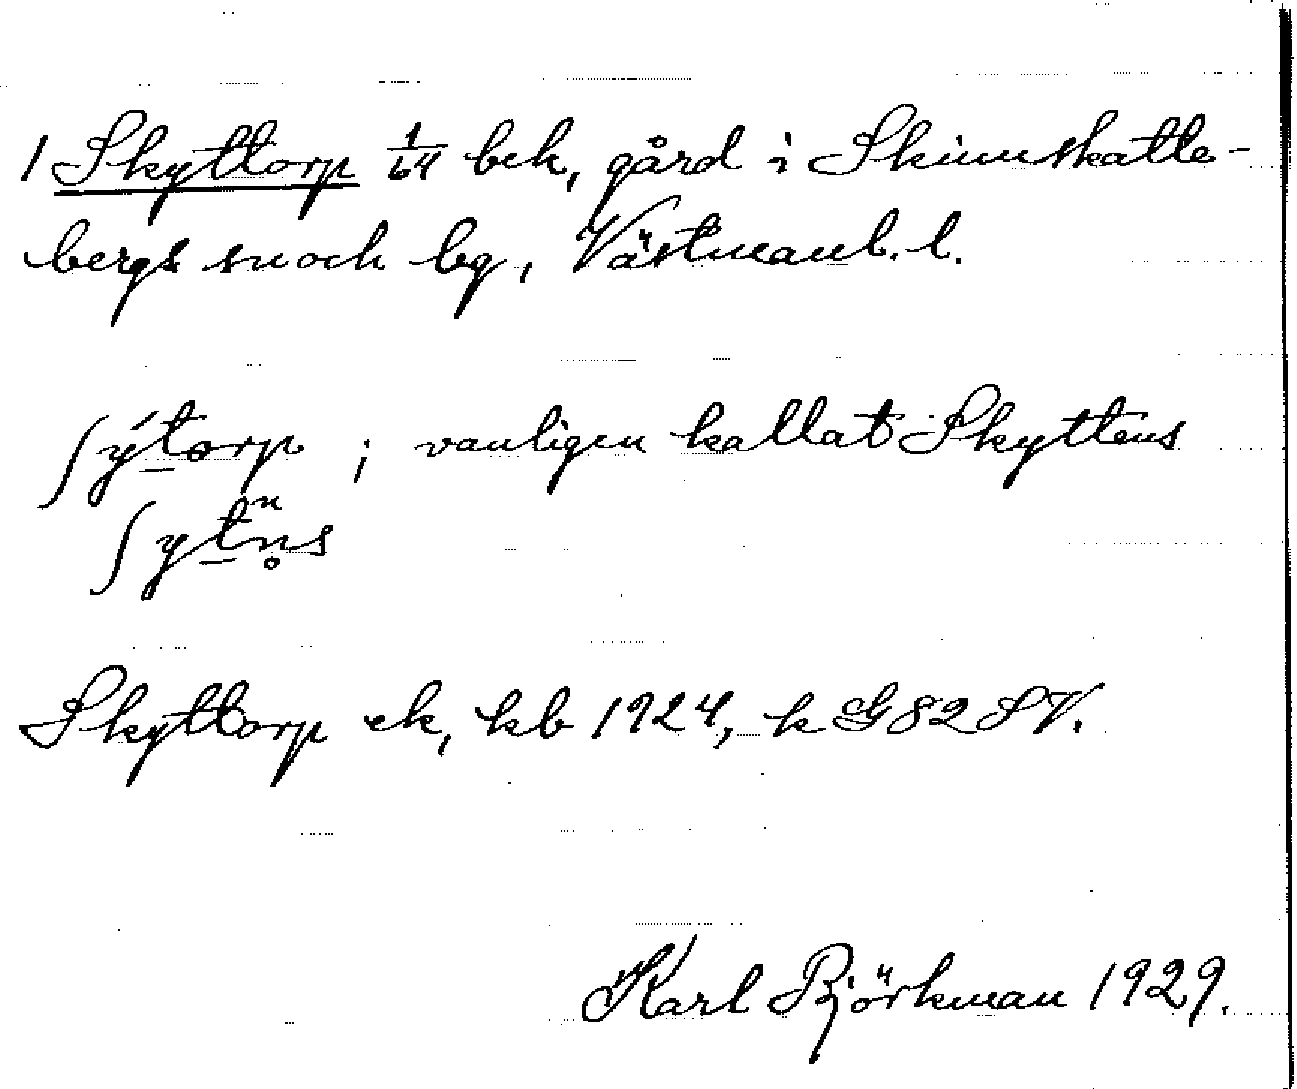 1 Skyttorp 1/64 bek, gård i Skinnskatte-
bergs sn och bg, Västmanl. l.
ʃýtorp ; vanligen kallat Skyttens
ʃytn̥s
Skyttorp ek, kb 1924, k G82SV.
Karl Björkman 1929.